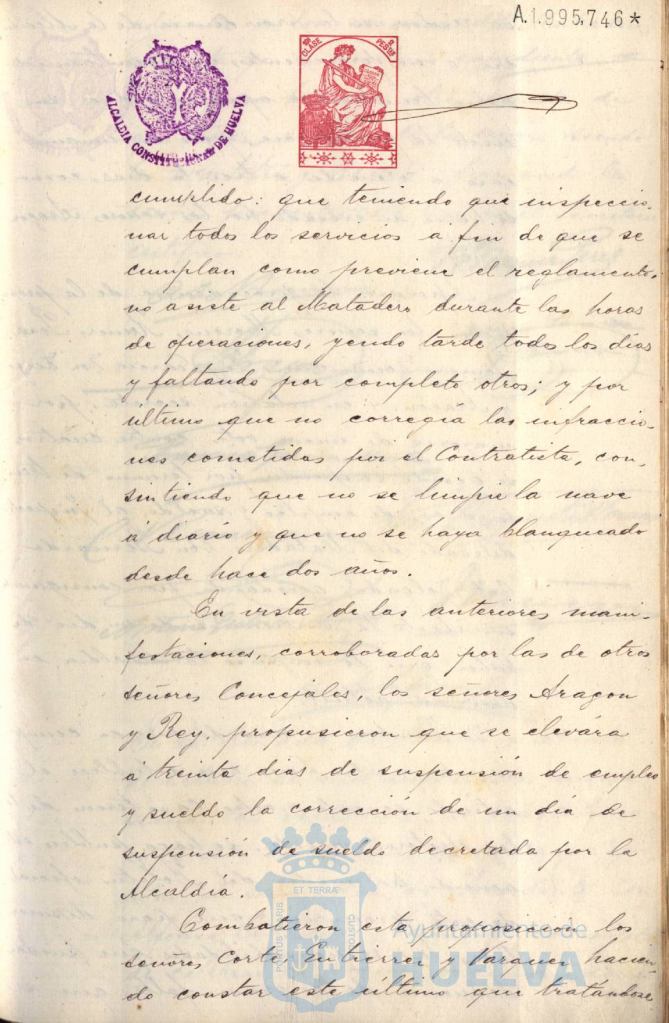 A.1.995,746*
CLASE
PESETAS
ALCALDIA CONSTITUCIONAL DE HUELVA
cumplido: que teniendo que inspeccio-
nar todos los servicios á fin de que se
cumplan como previene el reglamento,
no asiste al Matadero durante las horas
de operaciones, yendo tarde todos los dias
y faltando por completo otros; y por
último que no corregía las infraccio-
nes cometidas por el Contratista, con-
sintiendo que no se limpie la nave
á diario y que no se haya blanqueado
desde hace dos años.
En vista de las anteriores mani-
festaciones, corroboradas por las de otros
señores Concejales, los señores Aragon
y Rey, propusieron que se elevára
á treinta dias de suspensión de empleo
y sueldo la corrección de un día de
suspensión de sueldo decretada por la
Alcaldía.
Combatieron esta proposicion los
señores Corte, Gutierrez y Vazquez, hacien-
do constar este último que tratándose
PORTUS MARIS
ET TERRÆ
CUSTODIA
Ayuntamiento de
HUELVA